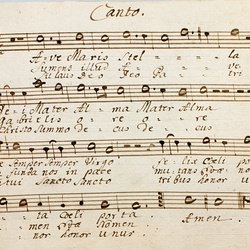 Canto.
Ave Maris Stel la
Sumens illud Ave
laus Deo Patri
Dei Mater Alma Mater Alma
Gabrielis ore ore
Christo Summo decus cus
semper semper Virgo felix Coeli por
funda nos in pace mutans Evae no
tui Sancto Sancto tribus honor
ta Coeli porta Amen.
men Evae nomen
nor honor unus.